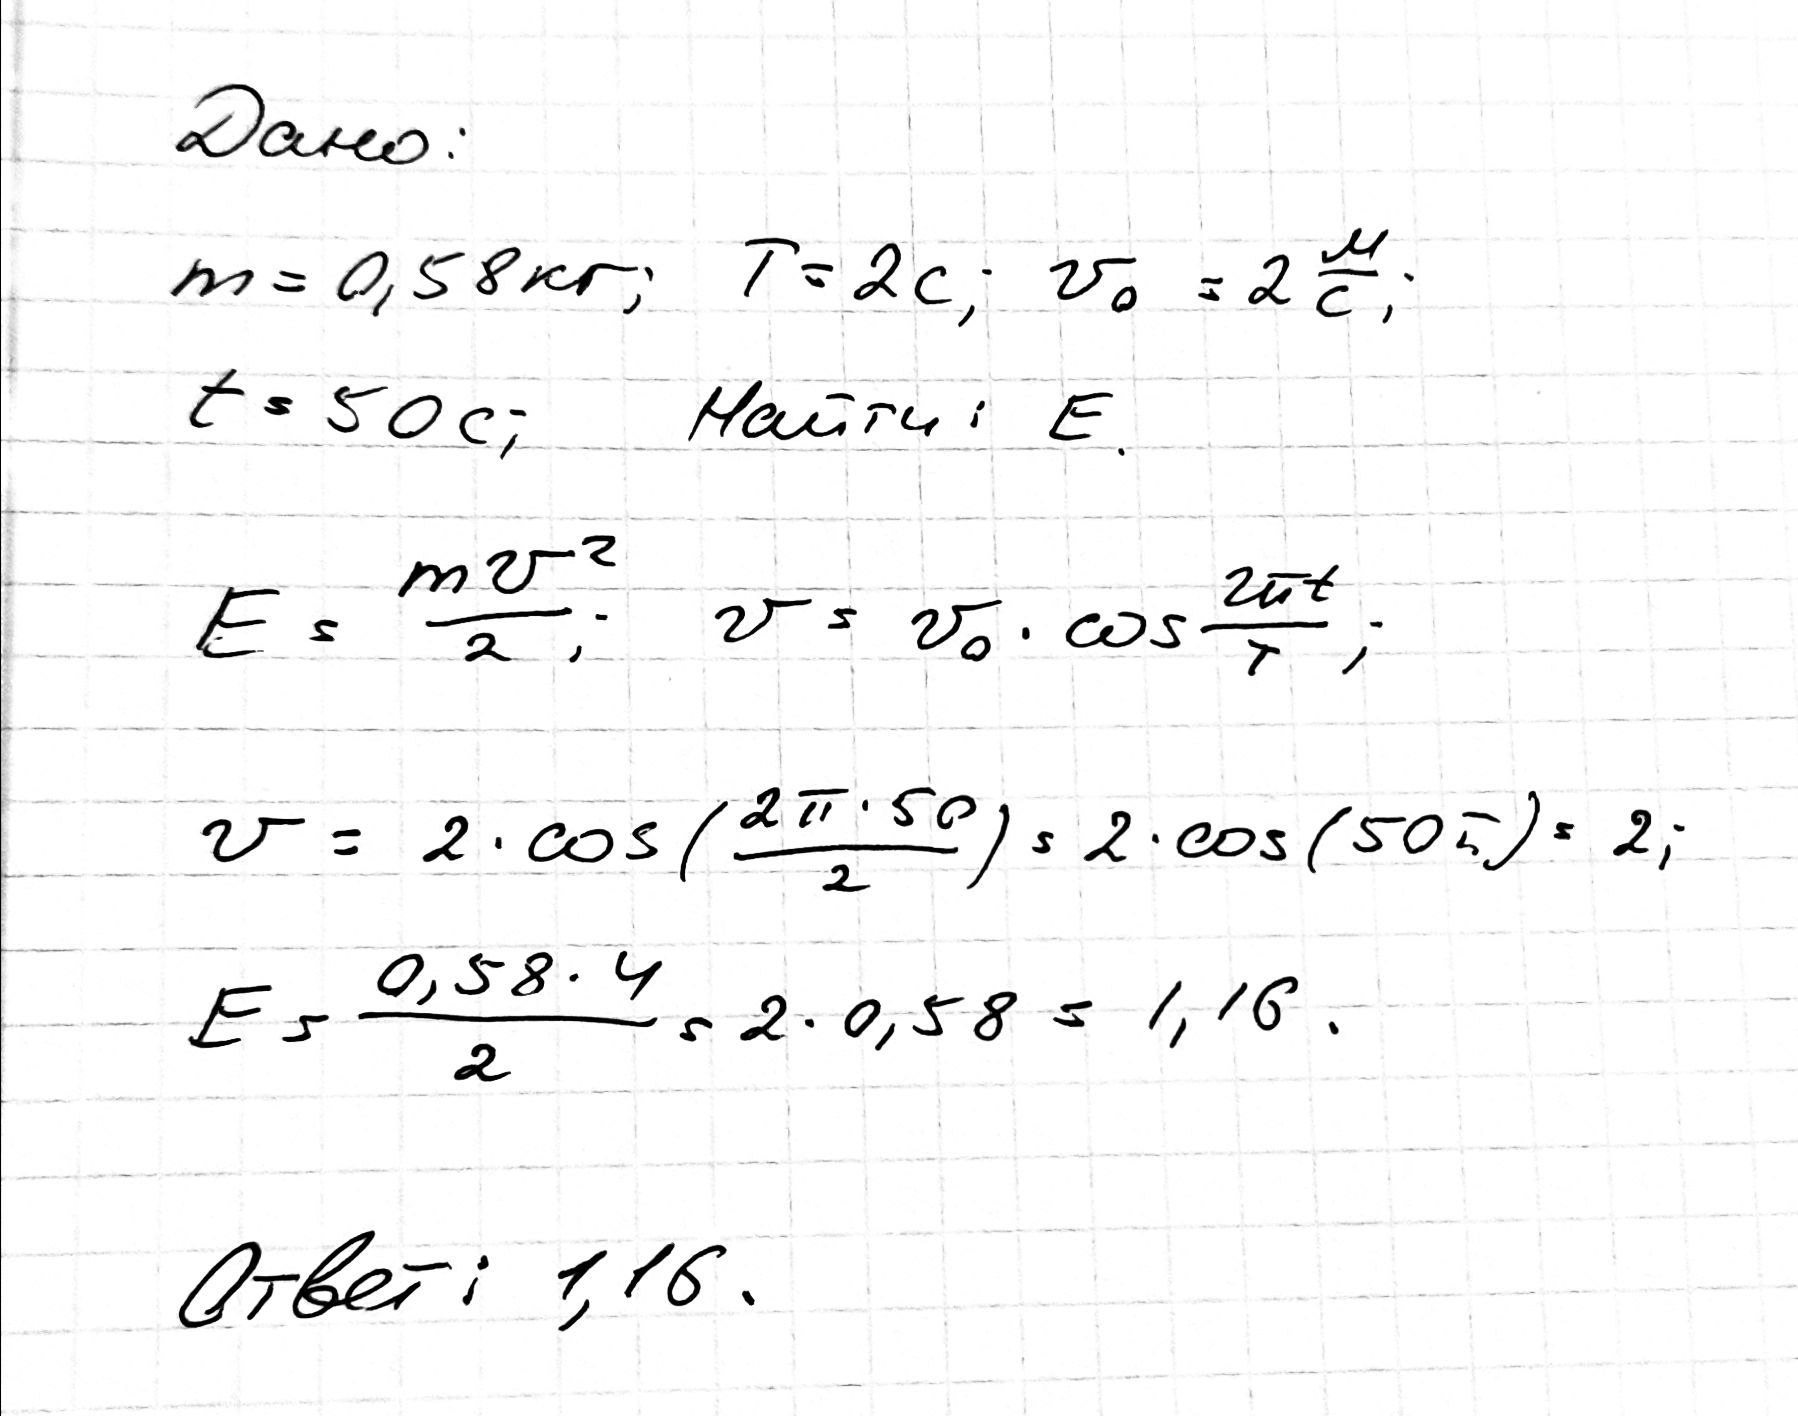 Дано:
m = 0,58 кг; T = 2 с; v₀ = 2 м/с;
t = 50 с; Найти: E.
E = mv²/2; v = v₀ · cos 2πt/T;
v = 2 · cos(2π · 50/2) = 2 · cos(50π) = 2;
E = 0,58 · 4/2 = 2 · 0,58 = 1,16.
Ответ: 1,16.